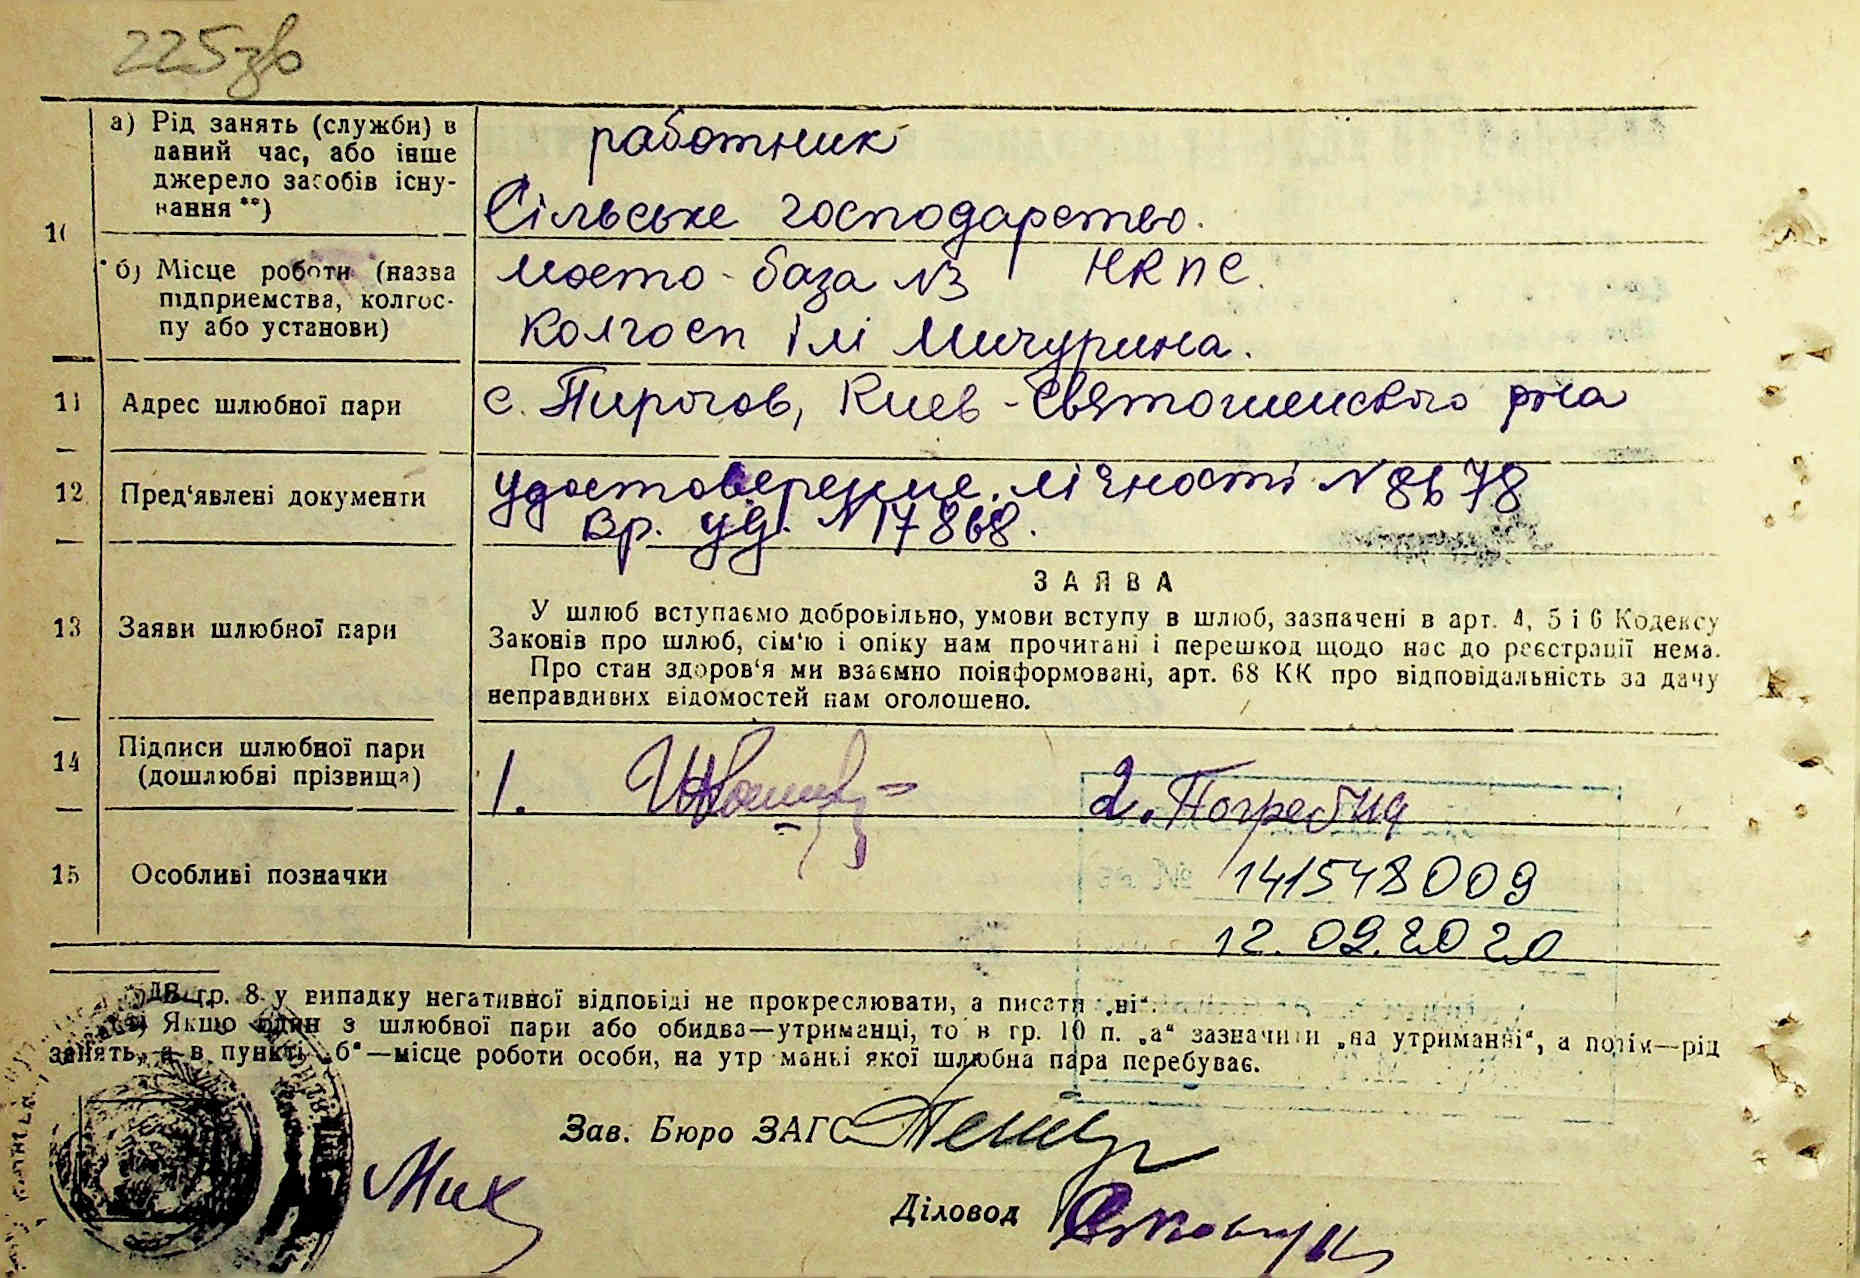 225зв
10
а) Рід занять (служби) в
даний час, або інше
джерело засобів існу-
вання **)
работник
Сільське господарство.
б) Місце роботи (назва
підприємства, колгос-
пу або установи)
Мосто-база №3 НКПС.
Колгосп ім Мичурина.
11 Адрес шлюбної пари
с. Пирогов, Киев-Святошенского р-на
12 Пред'явлені документи
удостоверение лічності N 8678
Вр. уд. N 17868.
13 Заяви шлюбної пари
ЗАЯВА
У шлюб вступаємо добровільно, умови вступу в шлюб, зазначені в арт. 4, 5 і 6 Кодексу
Законів про шлюб, сім'ю і опіку нам прочитані і перешкод щодо нас до реєстрації нема.
Про стан здоров'я ми взаємно поінформовані, арт. 68 КК про відповідальність за дачу
неправдивих відомостей нам оголошено.
14 Підписи шлюбної пари
(дошлюбні прізвища)
1.
2. Погребна
15 Особливі позначки
141548009
12.09.2020
В гр. 8 у випадку негативної відповіді не прокреслювати, а писати „ні“.
Якщо один з шлюбної пари або обидва—утриманці, то в гр. 10 п. „а“ зазначити „на утриманні“, а потім—рід
занять, а в пункті „б“—місце роботи особи, на утриманні якої шлюбна пара перебуває.
Зав. Бюро ЗАГС
Мих
Діловод